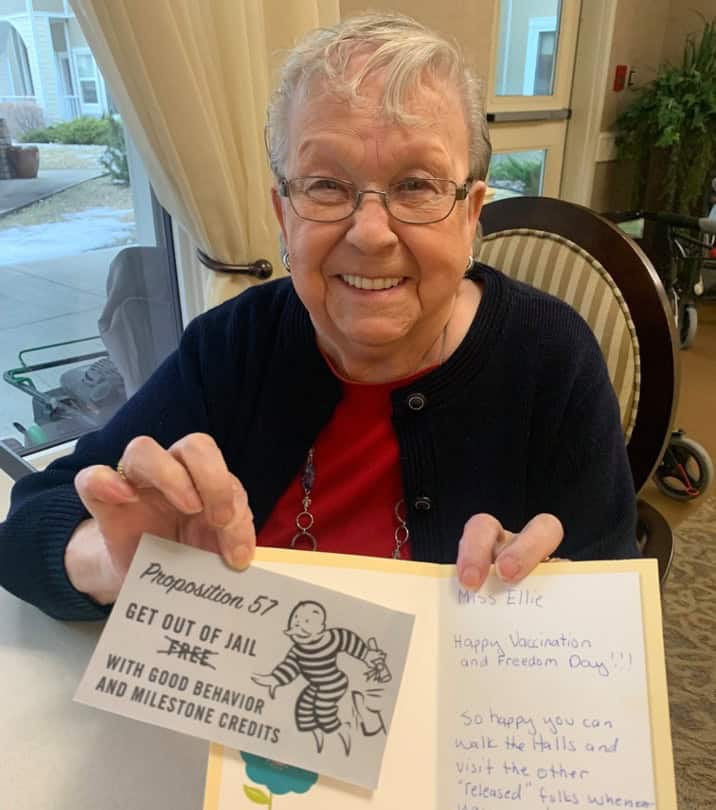 Proposition 57
GET OUT OF JAIL
FREE
WITH GOOD BEHAVIOR
AND MILESTONE CREDITS
Miss Ellie
Happy Vaccination
and Freedom Day!!!
So happy you can
walk the Halls and
visit the other
"released" folks whenever